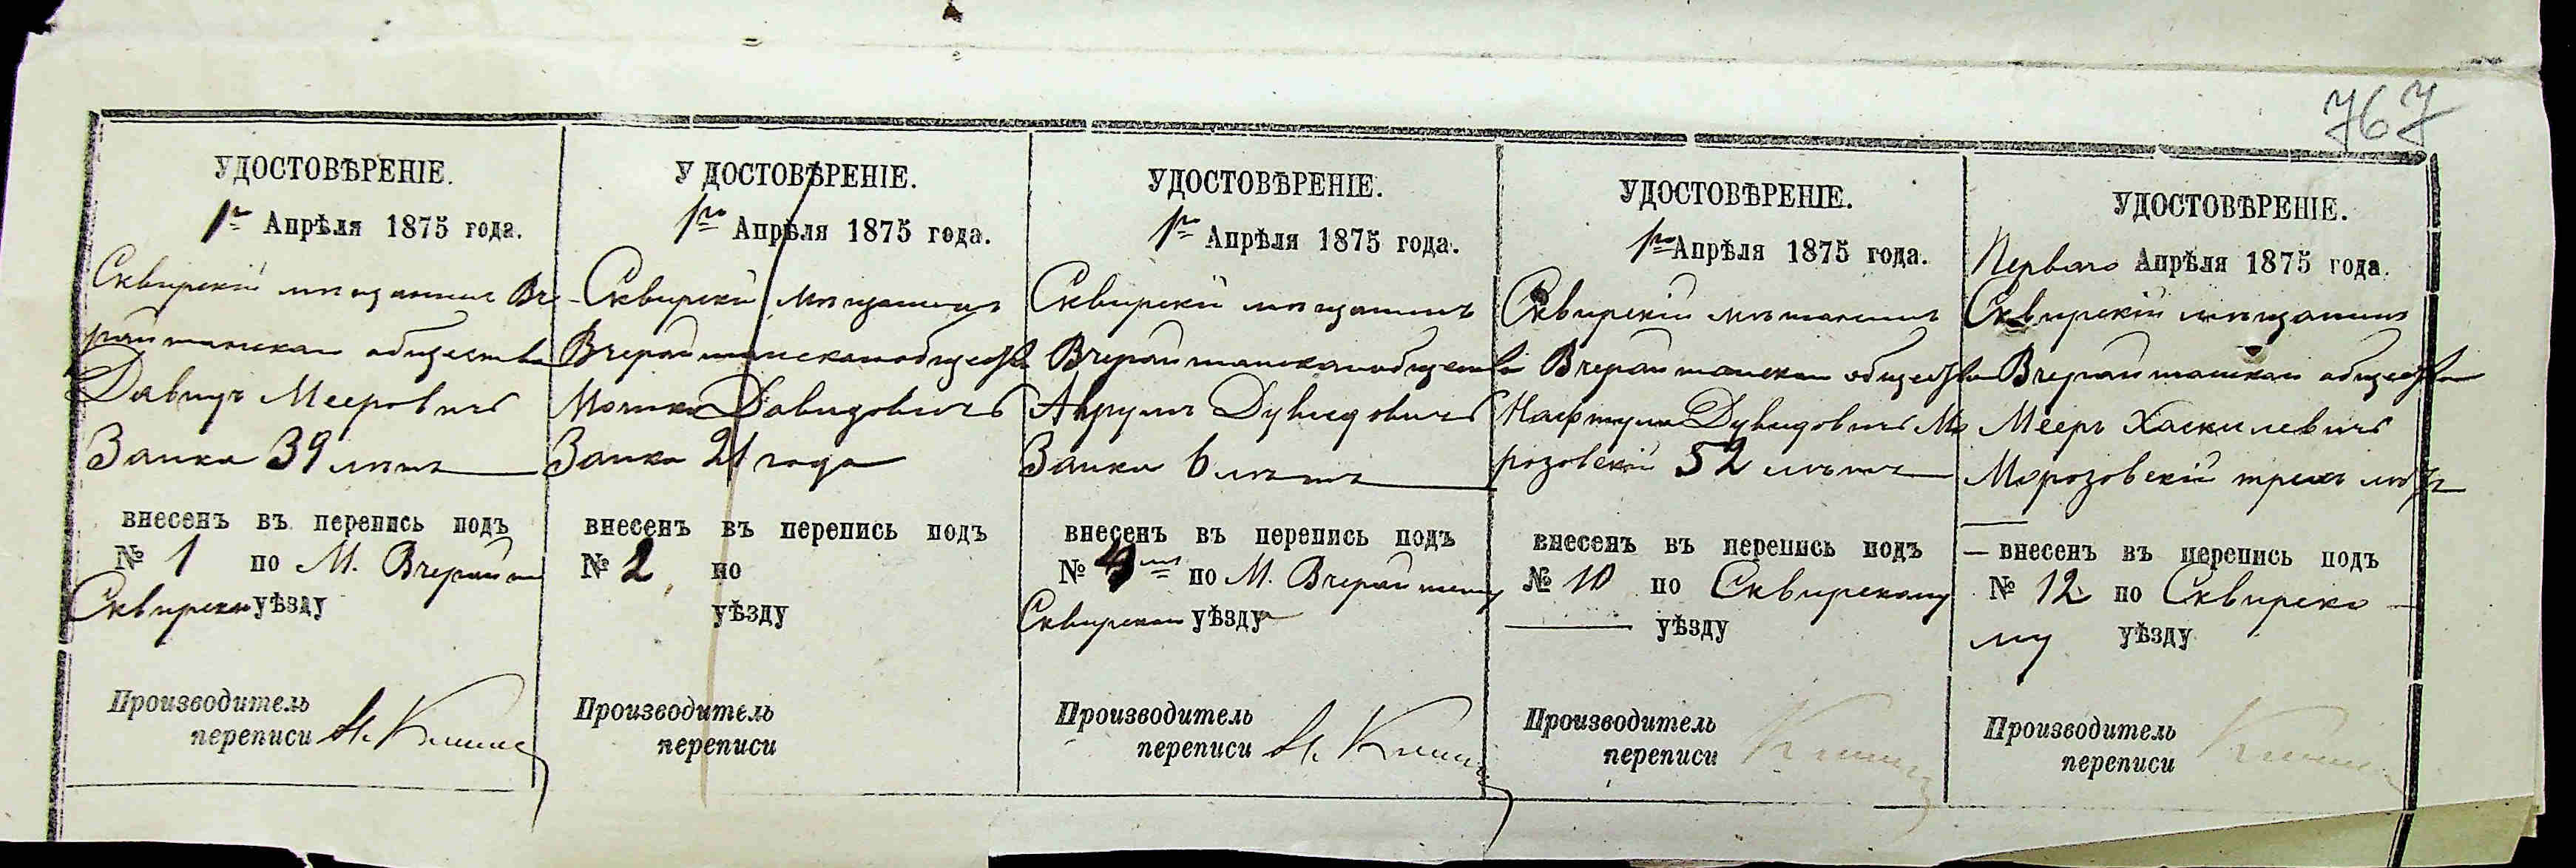 767
УДОСТОВѢРЕНІЕ.
1го Апрѣля 1875 года.
Сквирскій мѣщанинъ Вче-
райшанскаго общества
Давидъ Мееровичъ
Заика 39 лѣтъ
внесенъ въ перепись подъ
№ 1 по М. Вчерайш
Сквирском уѣзду
Производитель
переписи
УДОСТОВѢРЕНІЕ.
1го Апрѣля 1875 года.
Сквирскій мѣщанинъ
Вчерайшанскаго общества
Мошко Давидовичъ
Заика 21 года
внесенъ въ перепись подъ
№ 2 по
уѣзду
Производитель
переписи
УДОСТОВѢРЕНІЕ.
1го Апрѣля 1875 года.
Сквирскій мѣщанинъ
Вчерайшанскаго общества
Аврумъ Дувидовичъ
Заика 6 лѣтъ
внесенъ въ перепись подъ
№ по М. Вчерайшему
Сквирском уѣзду
Производитель
переписи
УДОСТОВѢРЕНІЕ.
1го Апрѣля 1875 года.
Сквирскій мѣщанинъ
Вчерайшанскаго общества
Нафтула Дувидовичъ Мо
розовскій 52 лѣтъ
внесенъ въ перепись подъ
№ 10 по Сквирскому
уѣзду
Производитель
переписи
УДОСТОВѢРЕНІЕ.
Перваго Апрѣля 1875 года.
Сквирскій мѣщанинъ
Вчерайшанскаго общества
Мееръ Хаскилевичъ
Морозовскій трехъ лѣтъ
внесенъ въ перепись подъ
№ 12 по Сквирско
му уѣзду
Производитель
переписи